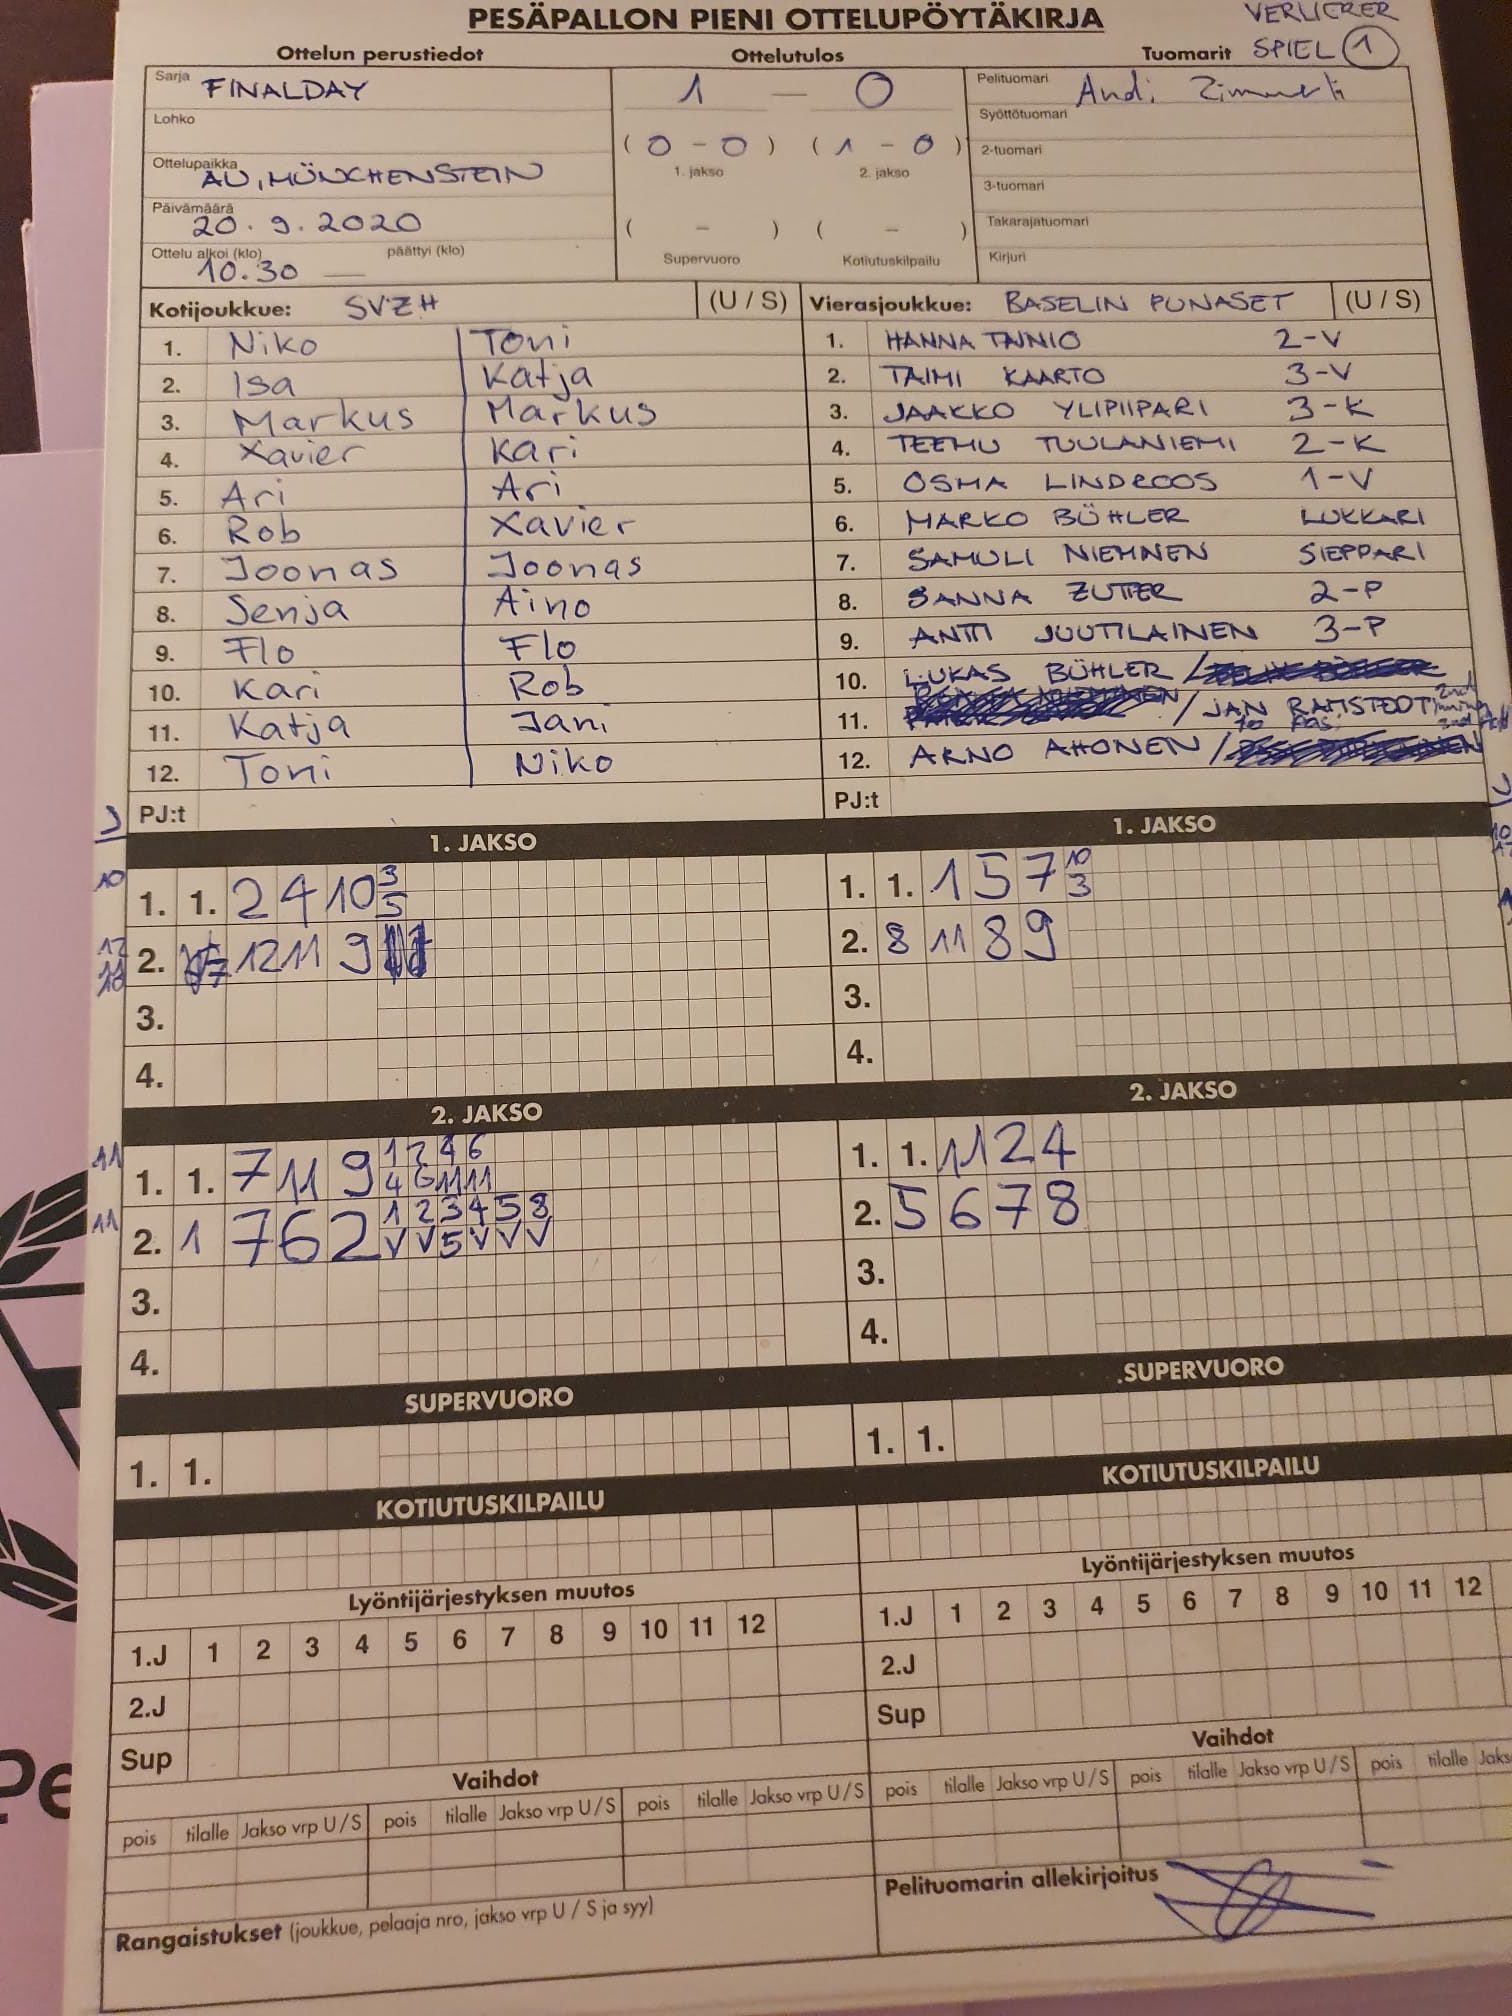 PESÄPALLON PIENI OTTELUPÖYTÄKIRJA
VERLIERER
SPIEL 1
Ottelun perustiedot
Ottelutulos
Tuomarit
Sarja FINALDAY
Lohko
Ottelupaikka AU, MÜNCHENSTEIN
Päivämäärä 20.9.2020
Ottelu alkoi (klo) 10.30 — päättyi (klo)
1 — 0
( 0 - 0 ) ( 1 - 0 )
1. jakso 2. jakso
( - ) ( - )
Supervuoro Kotiutuskilpailu
Pelituomari Andi
Syöttötuomari
2-tuomari
3-tuomari
Takarajatuomari
Kirjuri
Kotijoukkue: SVZH (U / S)
1. Niko Toni
2. Isa Katja
3. Markus Markus
4. Xavier Kari
5. Ari Ari
6. Rob Xavier
7. Joonas Joonas
8. Senja Aino
9. Flo Flo
10. Kari Rob
11. Katja Jani
12. Toni Niko
PJ:t
Vierasjoukkue: BASELIN PUNASET (U / S)
1. HANNA TAINIO 2-V
2. TAIMI KAARTO 3-V
3. JAAKKO YLIPIIPARI 3-K
4. TEEMU TUULANIEMI 2-K
5. OSMA LINDROOS 1-V
6. MARKO BÜHLER LUKKARI
7. SAMULI NIEMINEN SIEPPARI
8. SANNA ZUTTER 2-P
9. ANTTI JUUTILAINEN 3-P
10. LUKAS BÜHLER /
11. / JAN
12. ARNO AHONEN /
PJ:t
J
1. JAKSO
10 1. 1. 2 4 10 3 5
2. 12 11 9
3.
4.
2. JAKSO
11 1. 1. 7 11 9 1 2 4 6
4 6 11 11
11 2. 1 7 6 2 1 2 3 4 5 8
V V 5 V V V
3.
4.
SUPERVUORO
1. 1.
KOTIUTUSKILPAILU
Lyöntijärjestyksen muutos
1.J 1 2 3 4 5 6 7 8 9 10 11 12
2.J
Sup
Vaihdot
pois tilalle Jakso vrp U / S pois tilalle Jakso vrp U / S pois tilalle Jakso vrp U / S
Rangaistukset (joukkue, pelaaja nro, jakso vrp U / S ja syy)
1. JAKSO
1. 1. 1 5 7 10 3
2. 8 11 8 9
3.
4.
2. JAKSO
1. 1. 11 2 4
2. 5 6 7 8
3.
4.
SUPERVUORO
1. 1.
KOTIUTUSKILPAILU
Lyöntijärjestyksen muutos
1.J 1 2 3 4 5 6 7 8 9 10 11 12
2.J
Sup
Vaihdot
pois tilalle Jakso vrp U / S pois tilalle Jakso vrp U / S pois tilalle Jaks
Pelituomarin allekirjoitus
Pe